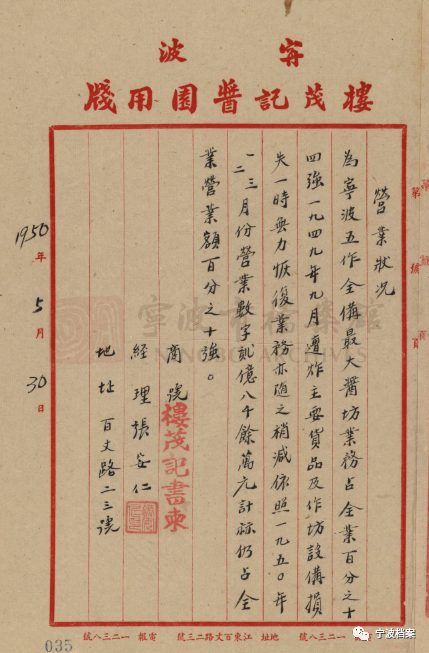 甯波
樓茂記醬園用牋
營業狀況
為寧波五作全備最大醬坊業務占全業百分之十
四強一九四九年九月遭炸主要貨品及作坊設備損
失一時無力恢復業務亦隨之稍減依照一九五〇年
一二三月份營業數字貳億八千餘萬元計祘仍占全
業營業額百分之十強。
商號 樓茂記書柬
經理張安仁
地址 百丈路二三號
1950年5月30日
一二三八號 地址 江東百丈路二三號 電報 一二三八號
035
寧波市檔案館
NINGBO ARCHIVES
宁波档案